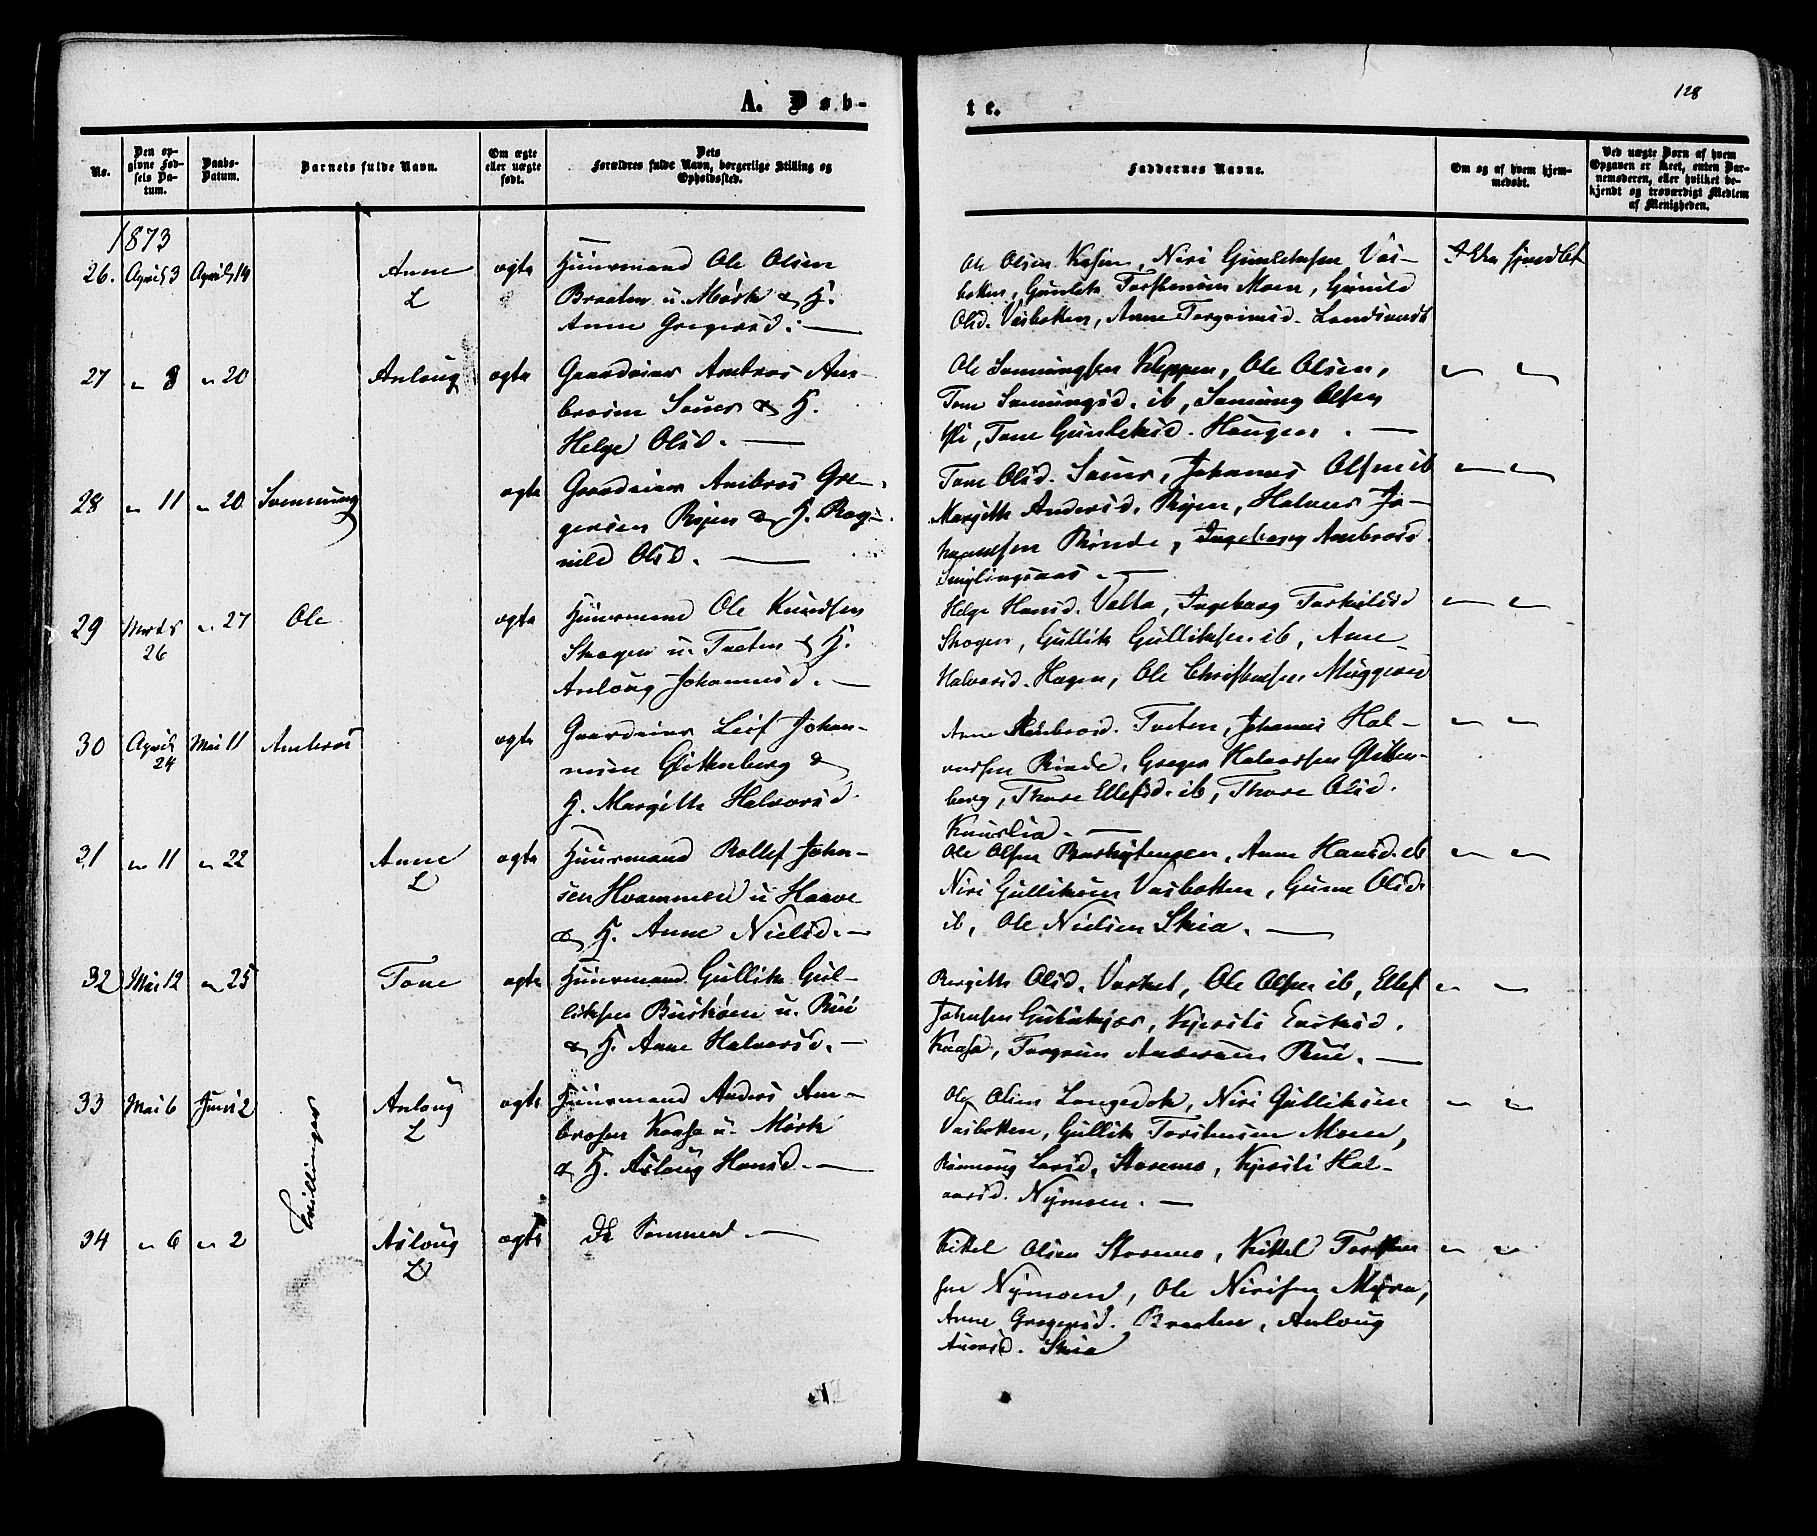 128
A. Døb-
te.
No.
Den op-
givne Fød-
sels Da-
tum.
Daabs-
Datum.
Barnets fulde Navn.
Om ægte
eller uægte
født.
Dets
Forældres fulde Navn, borgerlige Stilling og
Opholdssted.
Faddernes Navne.
Om og af hvem hjem-
medøbt.
Ved uægte Børn af hvem
Opgaven er skeet, enten Bar-
nemoderen, eller hvilket be-
kjendt og troværdigt Medlem
af Menigheden.
1873
26. April 3 April 14 Anne ægte Huusmand Ole Olsen
L Braaten u. Mørk & H.
Anne Gregersd. —
Ole Olsen Kasin, Niri Gunleksen Vas-
botten, Gunlek Torstensen Moen, Gunild
Olsd. Vasbotten, Anne Torgrimsd.
Ikke hjemdøbt
27 " 8 " 20 Aaloug ægte Gaardeier Ambros Am-
brosen Sauer & H.
Helge Olsd. —
Ole Svenungsen Kleppen, Ole Olsen,
Tone Svenungsd. ib, Svenung Olsen
Tone Gunleksd. Haugen. —
" "
28 " 11 " 20 Svennung ægte Gaardeier Ambros Gre-
gersen Bøen & H. Rag-
nild Olsd. —
Tone Olsd. Sauer, Johannes Olsen ib
Margith Andersd. Bøen, Halvor Jo-
hannesen Rinde, Ingeborg Ambrosd.
—
" "
29 Marts " 27 Ole ægte Huusmand Ole Knudsen
26 Skogen u. Tveten & H.
Aaloug Johannesd. —
Helge Hansd. Valla, Ingeborg Torkildsd
Skogen, Gullik Gulliksen ib, Anne
Halvorsd. Hagen, Ole Christensen
" "
30 April Mai 11 Ambros ægte Gaardeier Leif Johan-
24 nesen Glittenberg &
H. Margith Halvorsd.
Anne Ambrosd. Tveten, Johannes Hal-
vorsen Rinde, Greger Halvorsen Glitten-
berg, Thore Ellefsd. ib, Thore Olsd.
—
" "
31 " 11 " 22 Anne ægte Huusmand Rollef John-
L sen Hvammen u Haave
& H. Anne Nielsd. —
Ole Olsen Anne Hansd. ib
Niri Gulliksen Vasbotten, Gunne Olsd.
ib, Ole Nielsen Skia. —
" "
32 Mai 12 " 25 Tone ægte Huusmand Gullik Gul-
liksen Buskøen u. Rui
& H. Anne Halvorsd. —
Bergith Olsd. Ole Olsen ib, Ellef
Johnsen Kjersti
Kaasa, Torgrim Andersen Rui. —
" "
33 Mai 6 Juni 2 Tvillinger Aaloug ægte Huusmand Anders Am-
L brosen Kaasa u. Mørk
& H. Aslaug Hansd. —
Ole Olsen Langedok, Niri Gulliksen
Vasbotten, Gullik Torstensen Moen,
Rønnoug Larsd. Storemo, Kjersti Hal-
vorsd. Nymoen. —
" "
34 " 6 " 2 Aslaug ægte De Samme —
L
Kittel Olsen Storemo, Kittel Torsten
sen Nymoen, Ole Nirisen Myra,
Anne Gregersd. Braaten, Aaloug
Skia
" "